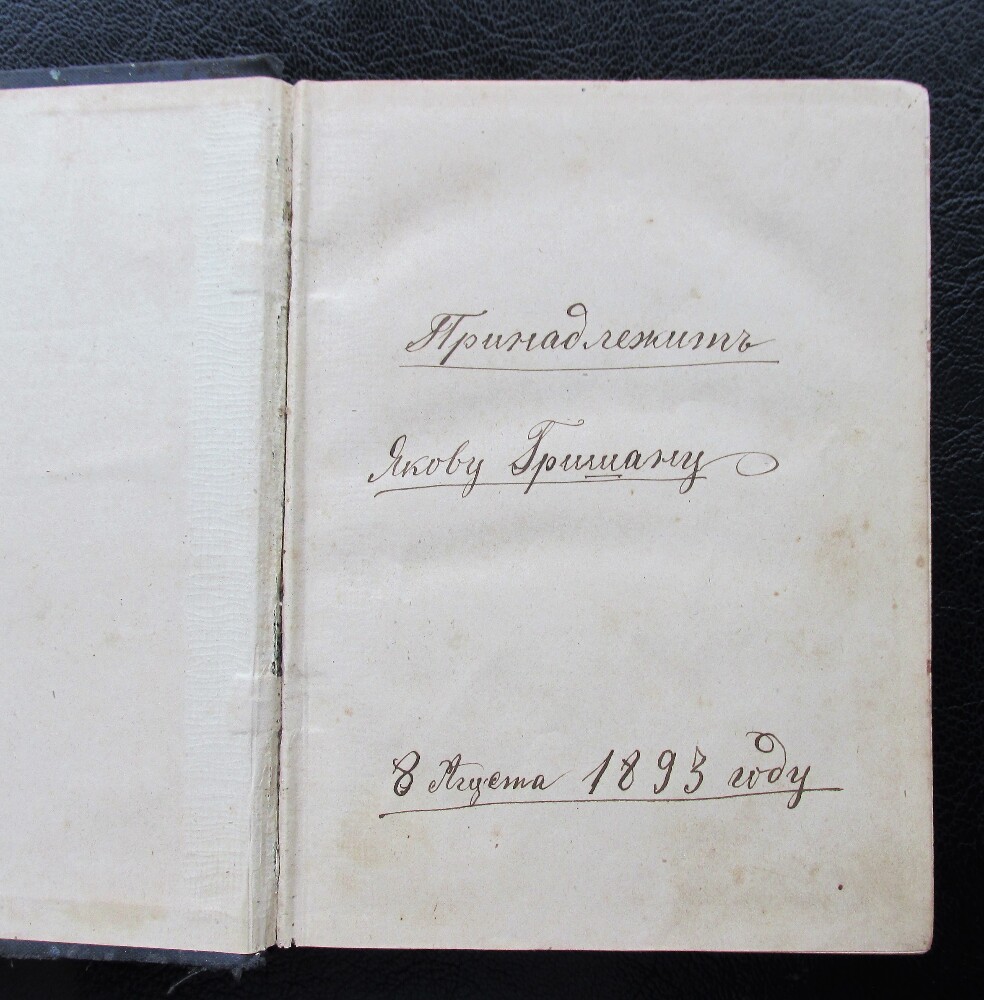 Принадлежитъ
Якову Гришану
8 Агуста 1893 году